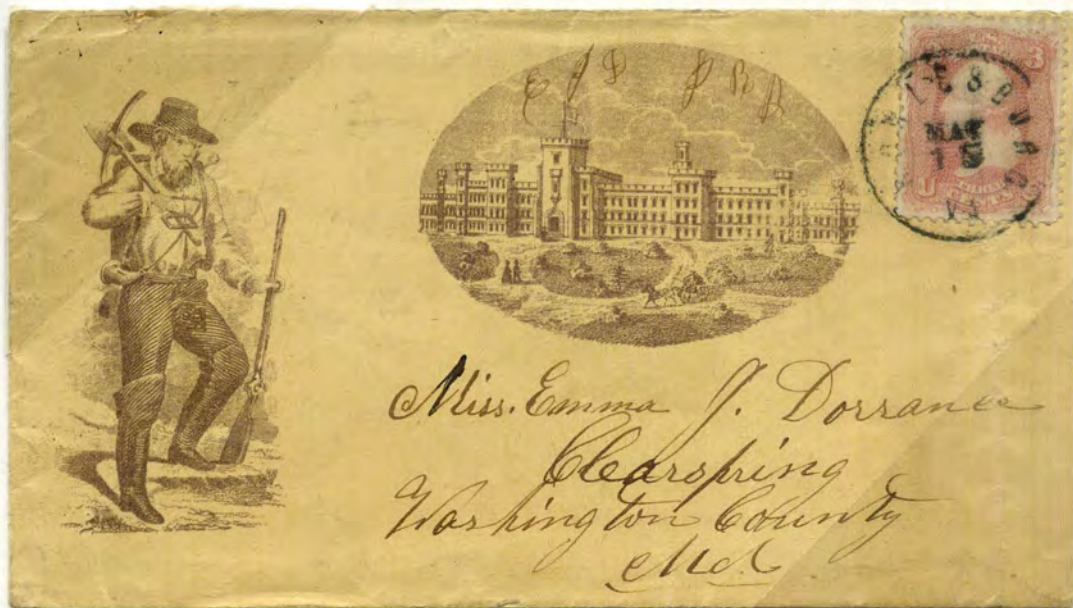 E J D J B A
MAY
VA
Miss. Emma J. Dorrance
Clearspring
Washington County
Md